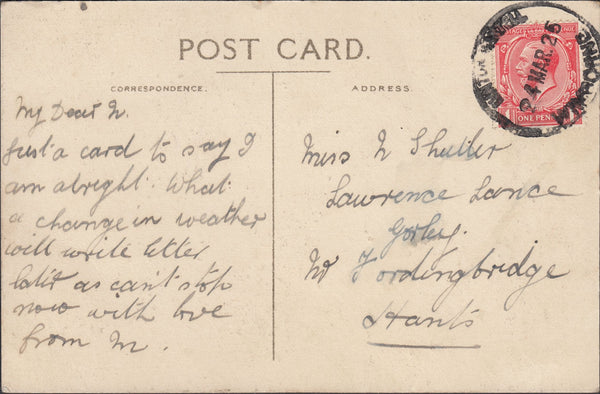 POST CARD.
CORRESPONDENCE.
ADDRESS.
24 MAR. 25
ONE PENNY
My Dear N.
Just a card to say I
am alright. What
a change in weather
will write letter
later as can't stop
now with love
from M.
Miss N Shutler
Lawrence Lance
Gorley.
Nr Fordingbridge
Hants